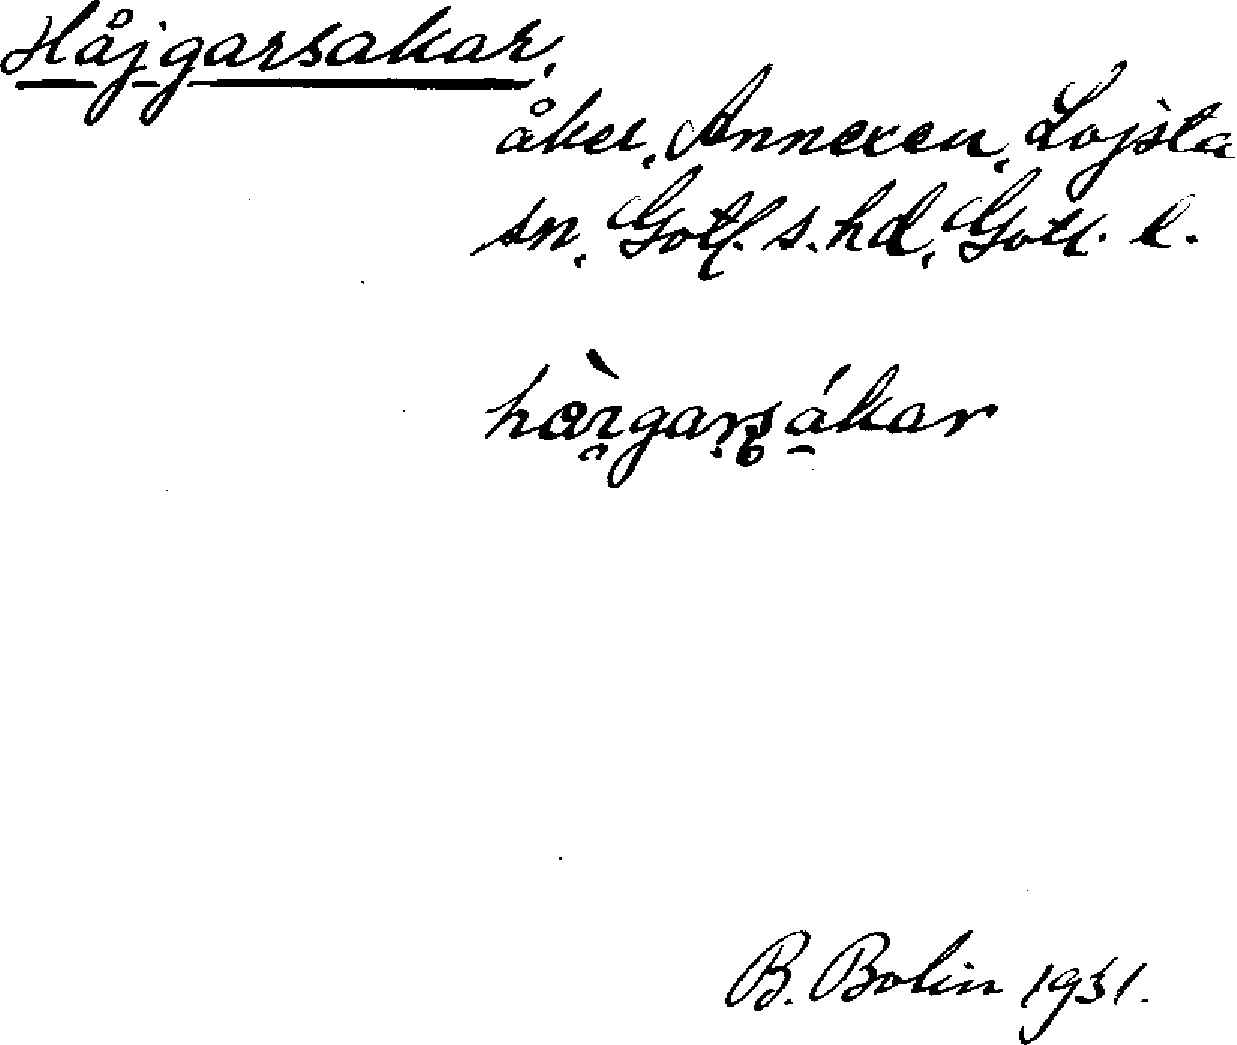 Håjgarsakar,
åker, Annexen, Lojsta
sn, Gotl. s. hd, Gotl. l.
B. Bolin 1931.